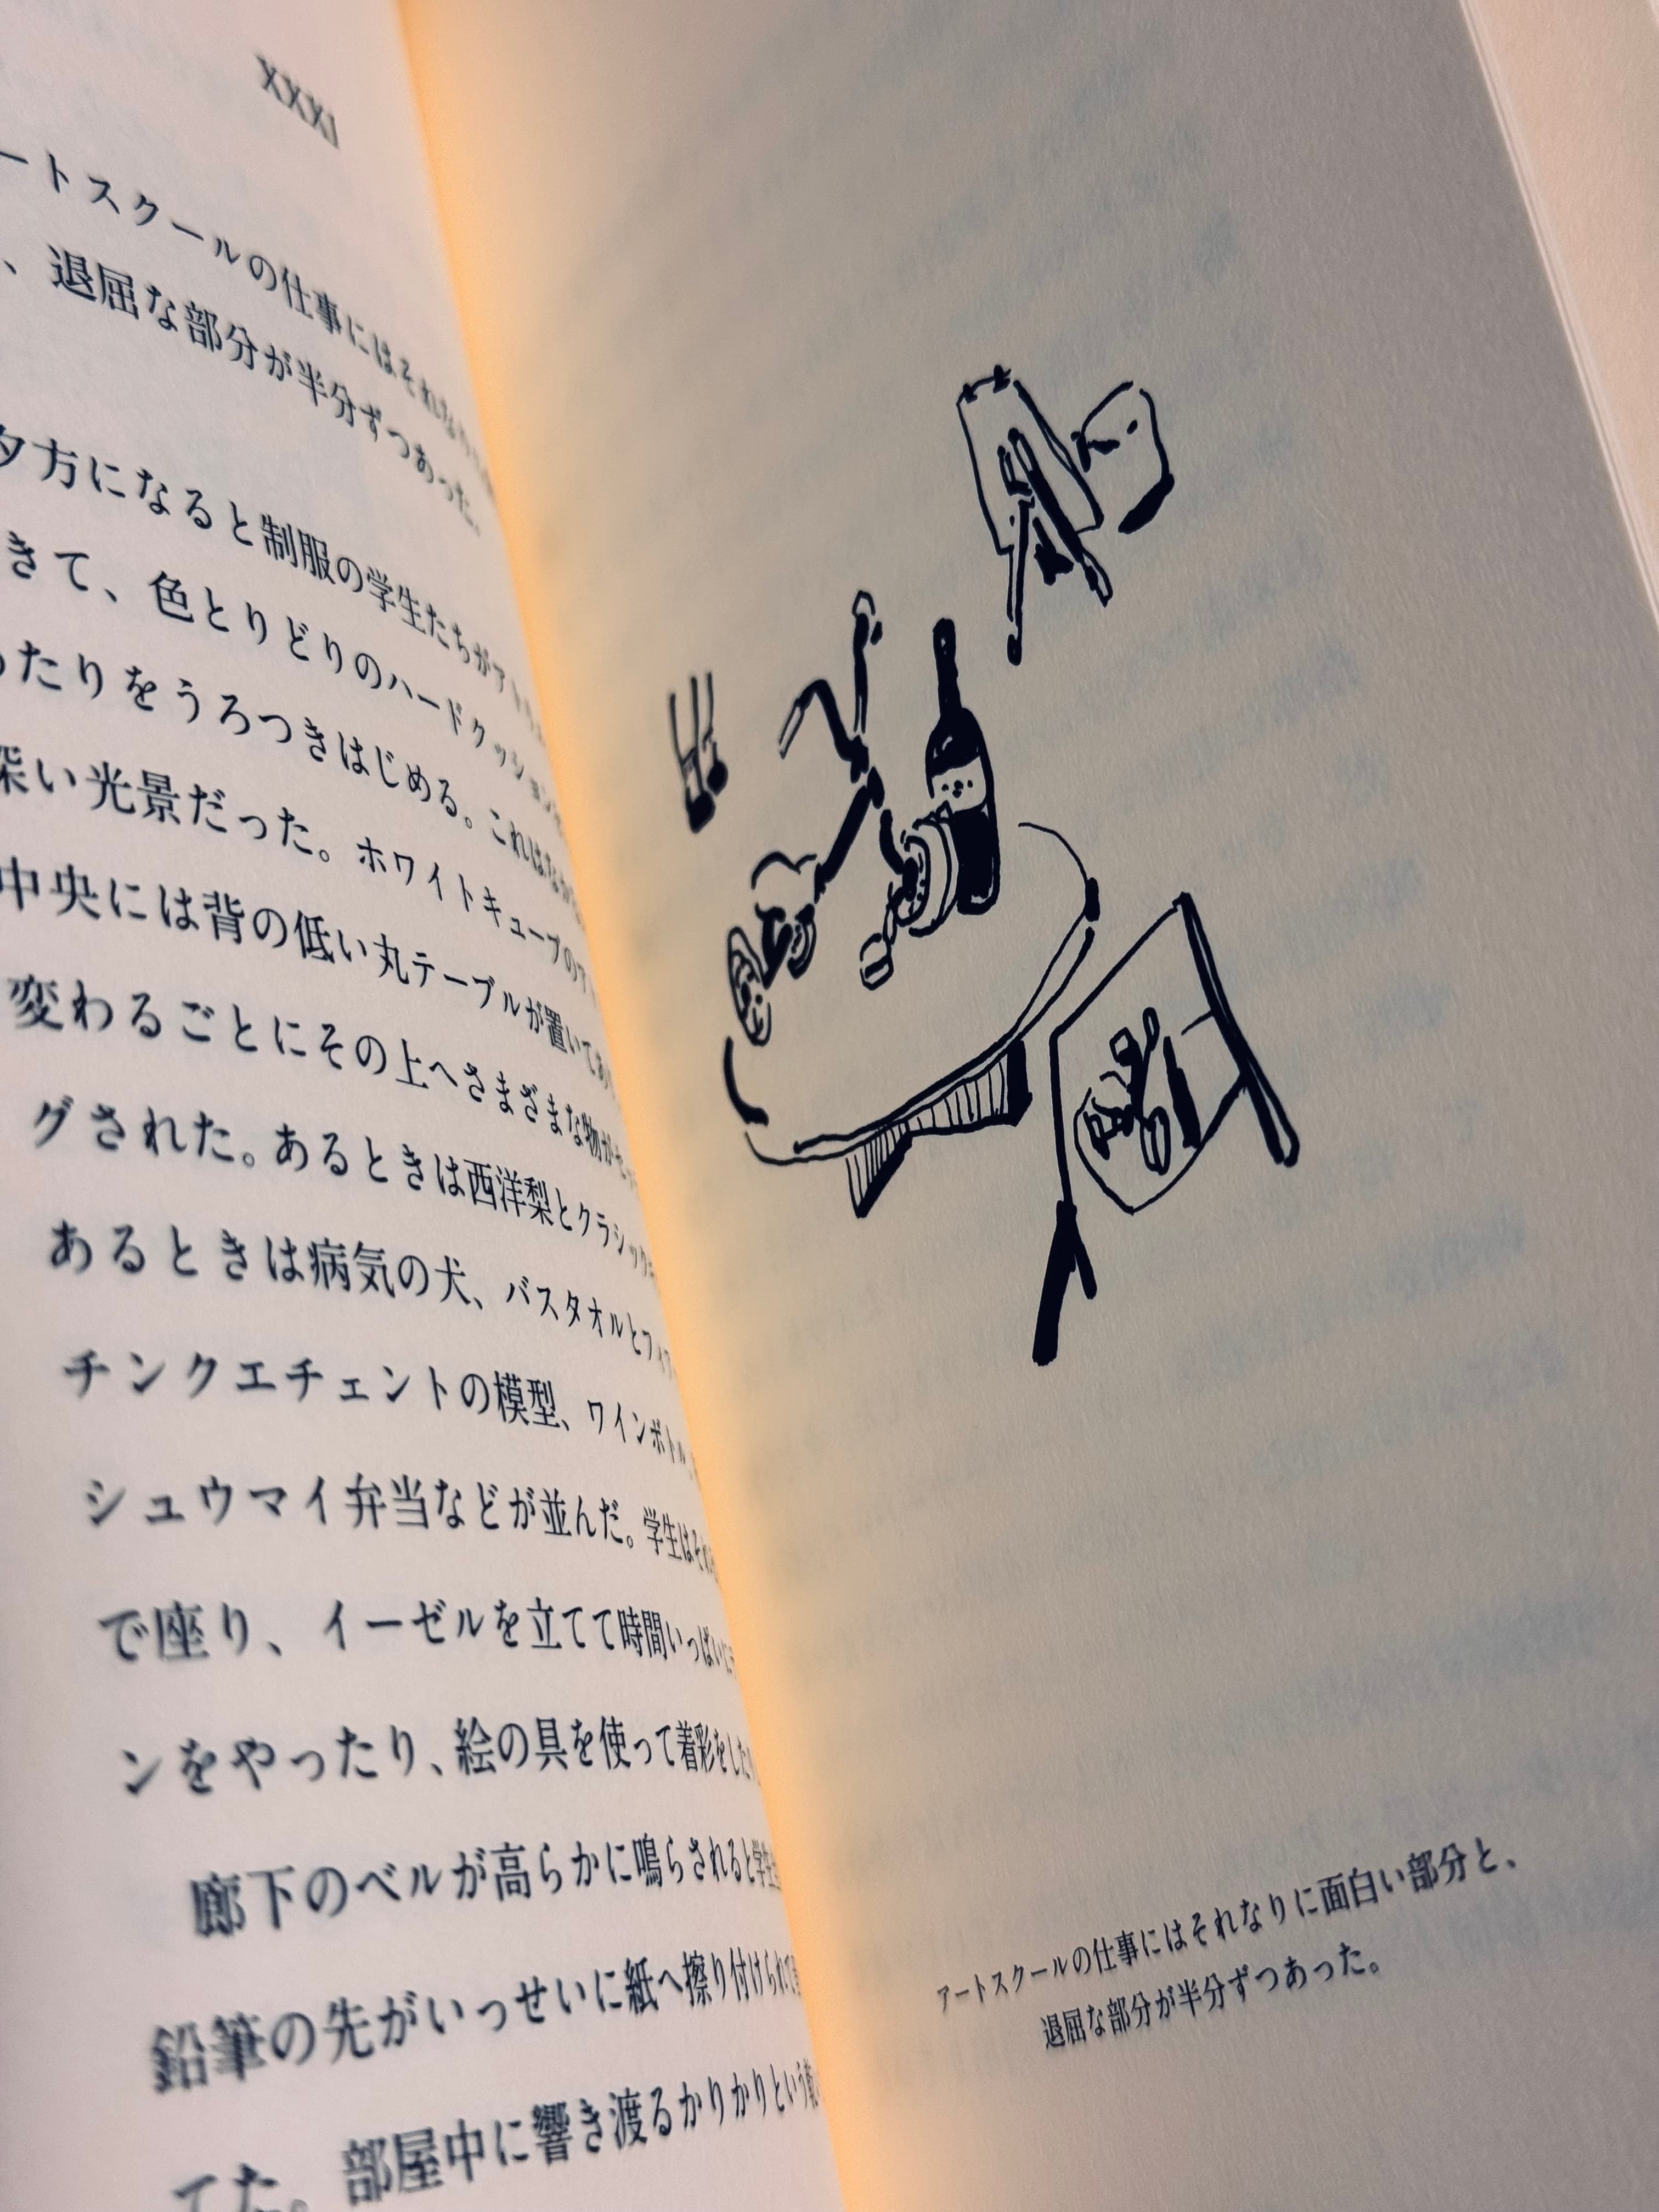 XXXI
ートスクールの仕事にはそれなり
、退屈な部分が半分ずつあった。
夕方になると制服の学生たちがア
きて、色とりどりのハードクッション
ったりをうろつきはじめる。これはなか
深い光景だった。ホワイトキューブのア
中央には背の低い丸テーブルが置いてあ
変わるごとにその上へさまざまな物がセッ
グされた。あるときは西洋梨とクラシック
あるときは病気の犬、バスタオルとフィ
チンクエチェントの模型、ワインボトル
シュウマイ弁当などが並んだ。学生はそれぞ
で座り、イーゼルを立てて時間いっぱいに
ンをやったり、絵の具を使って着彩をした
廊下のベルが高らかに鳴らされると学生
鉛筆の先がいっせいに紙へ擦り付けられて
てた。部屋中に響き渡るかりかりという
アートスクールの仕事にはそれなりに面白い部分と、
退屈な部分が半分ずつあった。